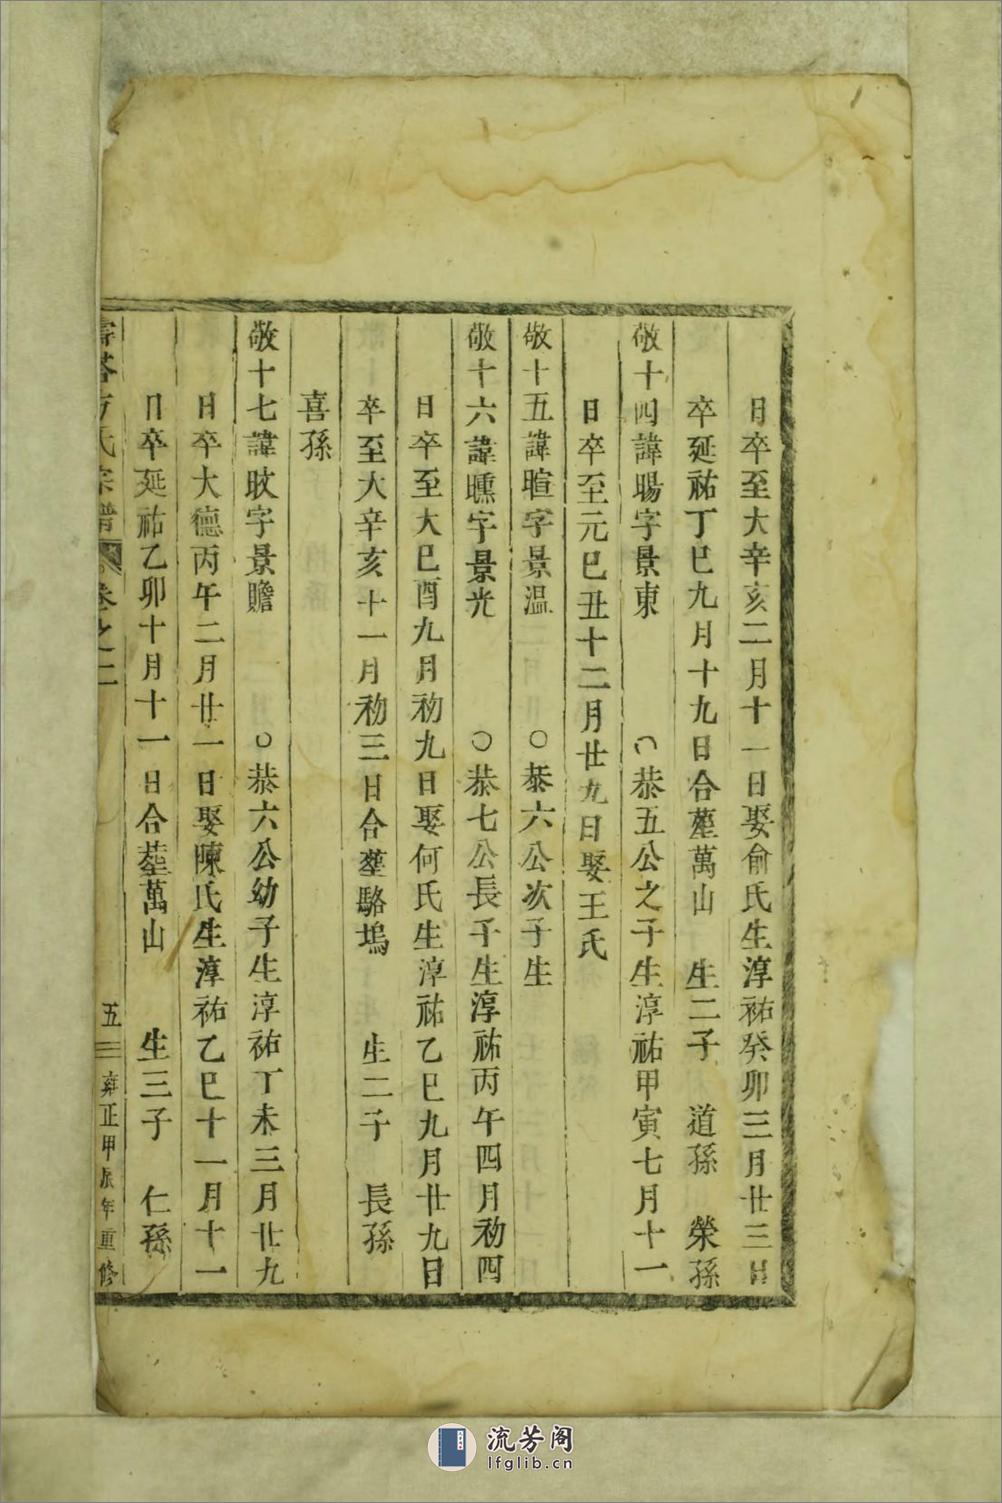 日卒至大辛亥二月十一日娶俞氏生淳祐癸卯三月廿三日
卒延祐丁巳九月十九日合塟萬山 生二子 道孫 榮孫
敬十四諱暘字景東 ○恭五公之子生淳祐甲寅七月十一
日卒至元巳丑十二月廿九日娶王氏
敬十五諱暄字景温 ○恭六公次子生
敬十六諱曛字景光 ○恭七公長子生淳祐丙午四月初四
日卒至大巳酉九月初九日娶何氏生淳祐乙巳九月廿九日
卒至大辛亥十一月初三日合塟駱塢 生二子 長孫
喜孫
敬十七諱旼字景瞻 ○恭六公幼子生淳祐丁未三月廿九
日卒大德丙午二月廿一日娶陳氏生淳祐乙巳十一月十一
日卒延祐乙卯十月十一日合塟萬山 生三子 仁孫
方氏宗譜 卷之二 五 雍正甲辰年重修
流芳阁
lfglib.cn